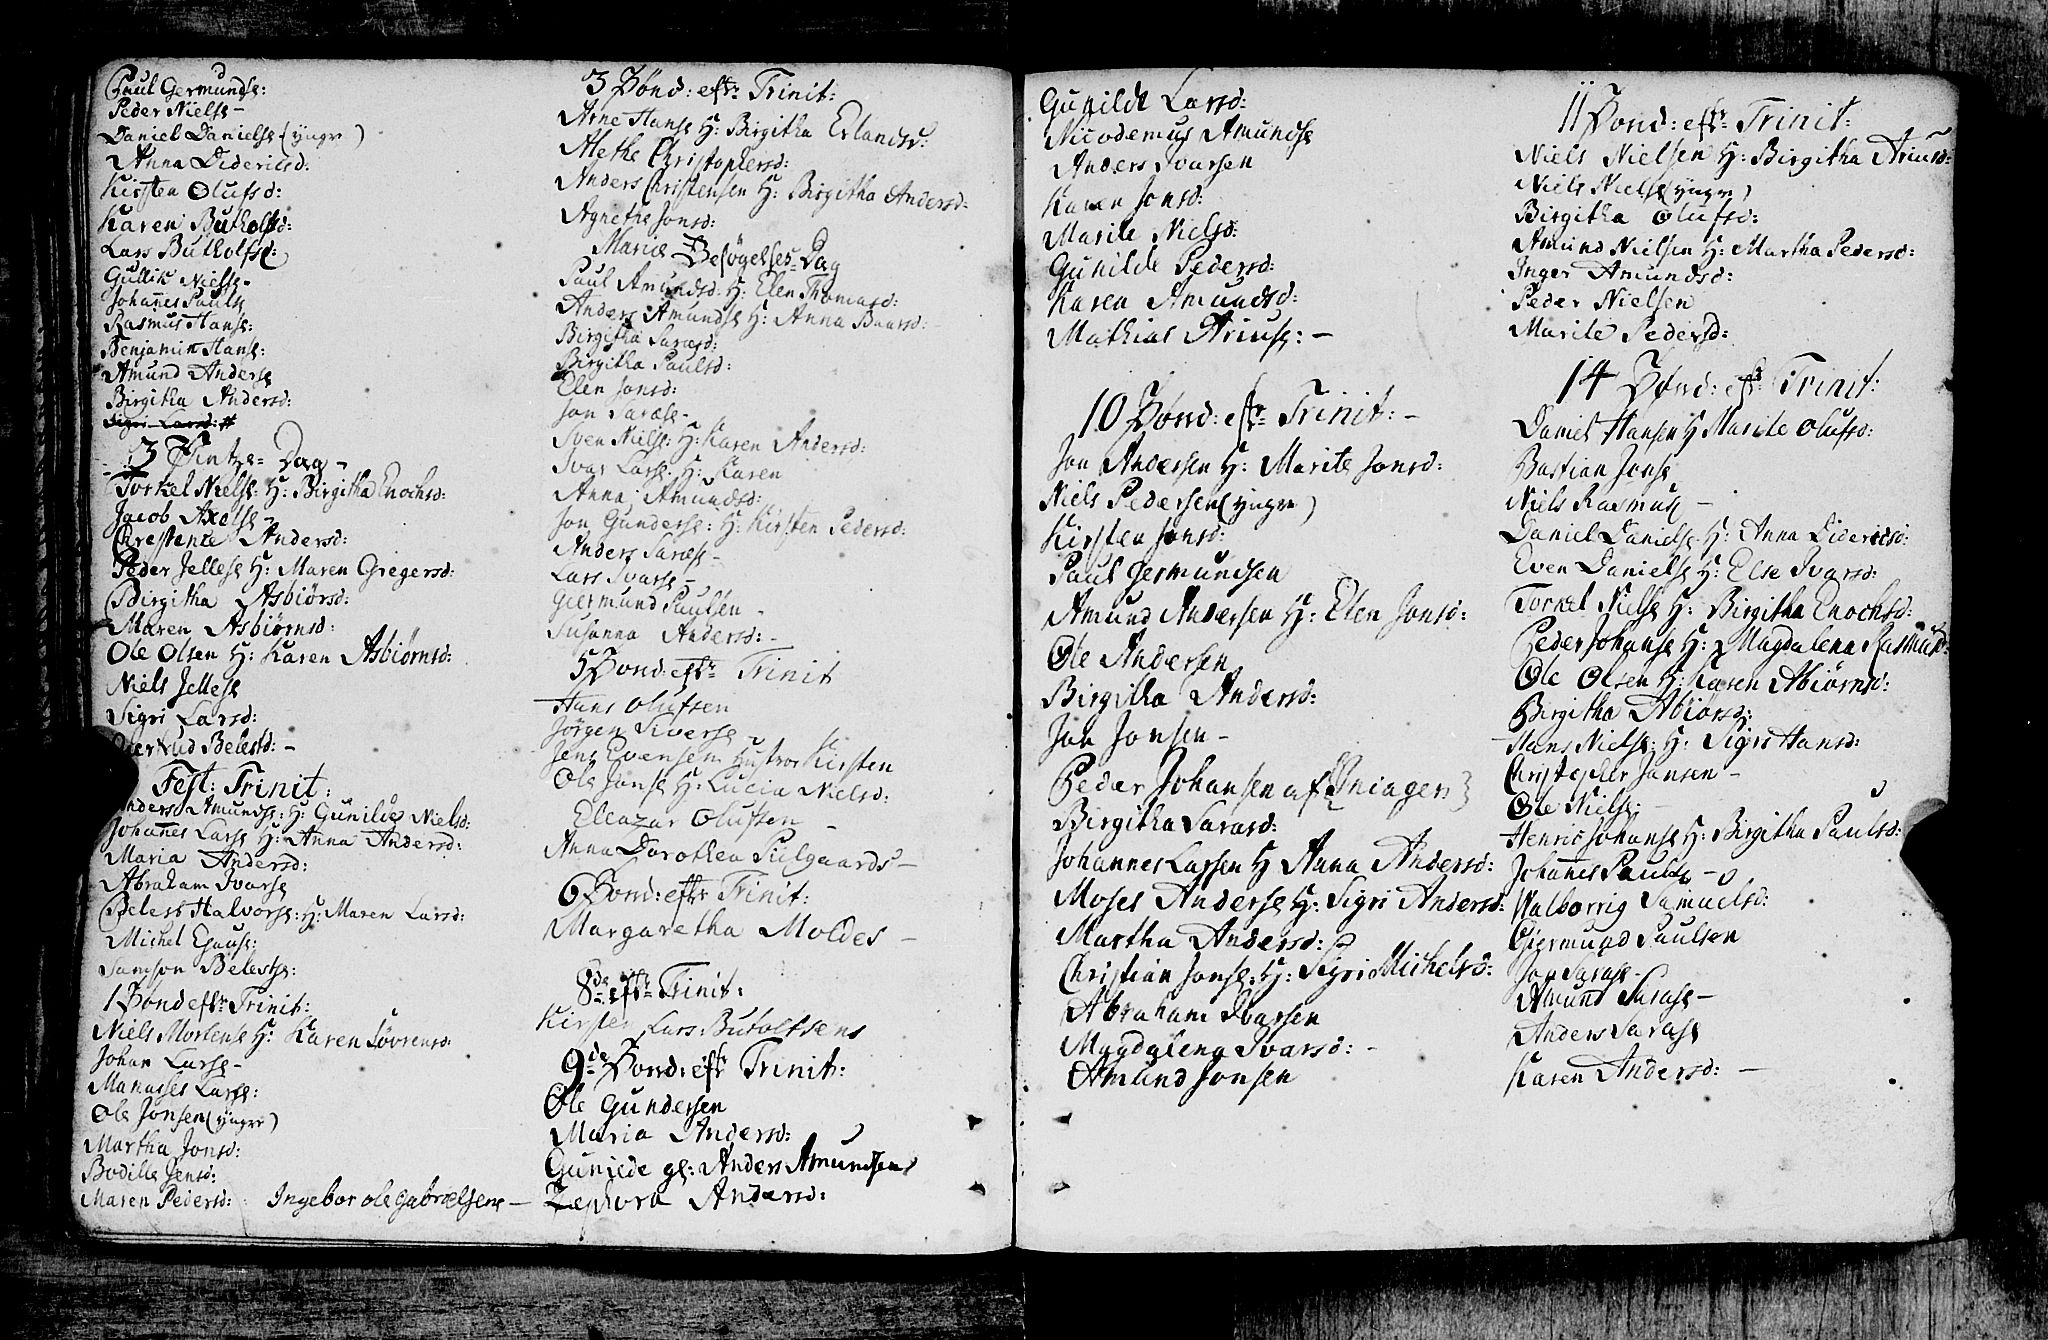 Paul Germundse:
Peder Nielse –
Daniel Danielse (yngre)
Anna Didericsd:
Kirsten Olufsd:
Karen Butholfsd:
Lars Butholfse:
Gullik Nielse –
Johanes Paulse
Rasmus Hanse:
Benjamin Hanse:
Amund Anderse
Birgitha Andersd:
Sigri Larsd:
3 Pintze-Dag –
Torkel Nielse: H: Birgitha Enochsd:
Jacob Axelse –
Chrestence Andersd:
Peder Jellese H: Maren Gregersd:
Birgitha Asbiørsd:
Maren Asbiørnsd:
Ole Olsen H: Karen Asbiørnsd:
Niels Jellese
Sigri Larsd:
Giertrud Belestsd: –
Fest: Trinit:
Anders Amundse: H: Gunilde Nielsd:
Johannes Larse H: Anna Andersd:
Maria Andersd:
Abraham Ivarse
Belest Halvorse: H: Maren Larsd:
Michel
Samson Belestse:
1 Sönd eftr Trinit:
Niels Mortense H: Karen Lövrensd:
Johan Larse –
Manasses Larse:
Ole Jonsen (yngre)
Martha Jonsd:
Bodille Jensd:
Maren Pedersd: Ingebor ole Gabrielsens –
3 Sönd: eftr Trinit:
Arne Hanse H: Birgitha Erlandsd:
Alethe Christophersd:
Anders Christensen H: Birgitha Andersd:
Agnethe Jonsd:
Mariæ Besögelses-Dag
Paul Amundsd: H: Elen Thomasd:
Anders Amundse H: Anna Baarsd:
Birgitha Sarasd:
Birgitha Paulsd:
Elen Jonsd:
Jon Sarase –
Sven Nielse: H: Karen Andersd:
Ivar Larse: H: Karen
Anna Amundsd:
Jon Gunderse: H: Kirsten Pedersd:
Anders Sarase –
Lars Ivarse –
Giermund Paulsen –
Susanna Andersd: –
5 Sönd: eftr Trinit
Hans Olufsen
Jörgen Siverse –
Jens Evensen Hustroe Kirsten
Ole Jonse H: Lucia Nielsd:
Eleazar Olufsen –
Anna Dorothea Pulgaards –
6 Sönd: eftr Trinit:
Margaretha Moldes –
8de eftr Trinit:
Kirsten Lars: Butolfsens
9de Sönd: eftr Trinit:
Ole Gundersen
Maria Andersd:
Gunilde gl: Anders Amundsens
Zephora Andersd:
Gunilde Larsd:
Nicodemus Amundse
Anders Ivarsen
Karen Jonsd:
Marite Nielsd:
Gunilde Pedersd:
Karen Amundsd:
Mathias Ariuse: –
10 Sönd: eftr Trinit: –
Jon Andersen H: Marite Jonsd:
Niels Pedersen (yngre)
Kirsten Jonsd:
Paul Germundsen
Amund Andersen H: Elen Jonsd:
Ole Andersen
Birgitha Andersd:
Jon Jonsen –
Peder Johansen af
Birgitha Sarasd:
Johannes Larsen H Anna Andersd:
Moses Anderse H: Sigri Andersd:
Martha Andersd:
Christian Jonse: H: Sigri Michelsd:
Abraham Ivarsen
Magdalena Ivarsd: –
Amund Jonsen
11 Sönd: eftr Trinit:
Niels Nielsen H: Birgitha Ariusd:
Niels Nielse (yngre)
Birgitha Olufsd:
Amund Nielsen H: Martha Pedersd:
Inger Amundsd:
Peder Nielsen
Marite Pedersd:
14 Sönd: eftr Trinit:
Daniel Hansen H Marite Olufsd:
Bastian Jonse
Niels Rasmuse –
Daniel Danielse H: Anna Didericsd:
Even Danielse H: Else Ivarsd:
Torkel Nielse H: Birgitha Enochsd:
Peder Johanse H: Magdalena Rasmusd:
Ole Olsen H: Karen Abiörnsd:
Birgitha Abiörsd:
Hans Nielse: H: Sigri Hansd:
Christopher Jansen –
Ole Nielse: –
Henric Johanse H: Birgitha Paulsd:
Johanes Paulse –
Walborrig Samuelsd:
Giermund Paulsen
Jon Sarase –
Amund Sarase –
Anders Sarase
Karen Andersd: –